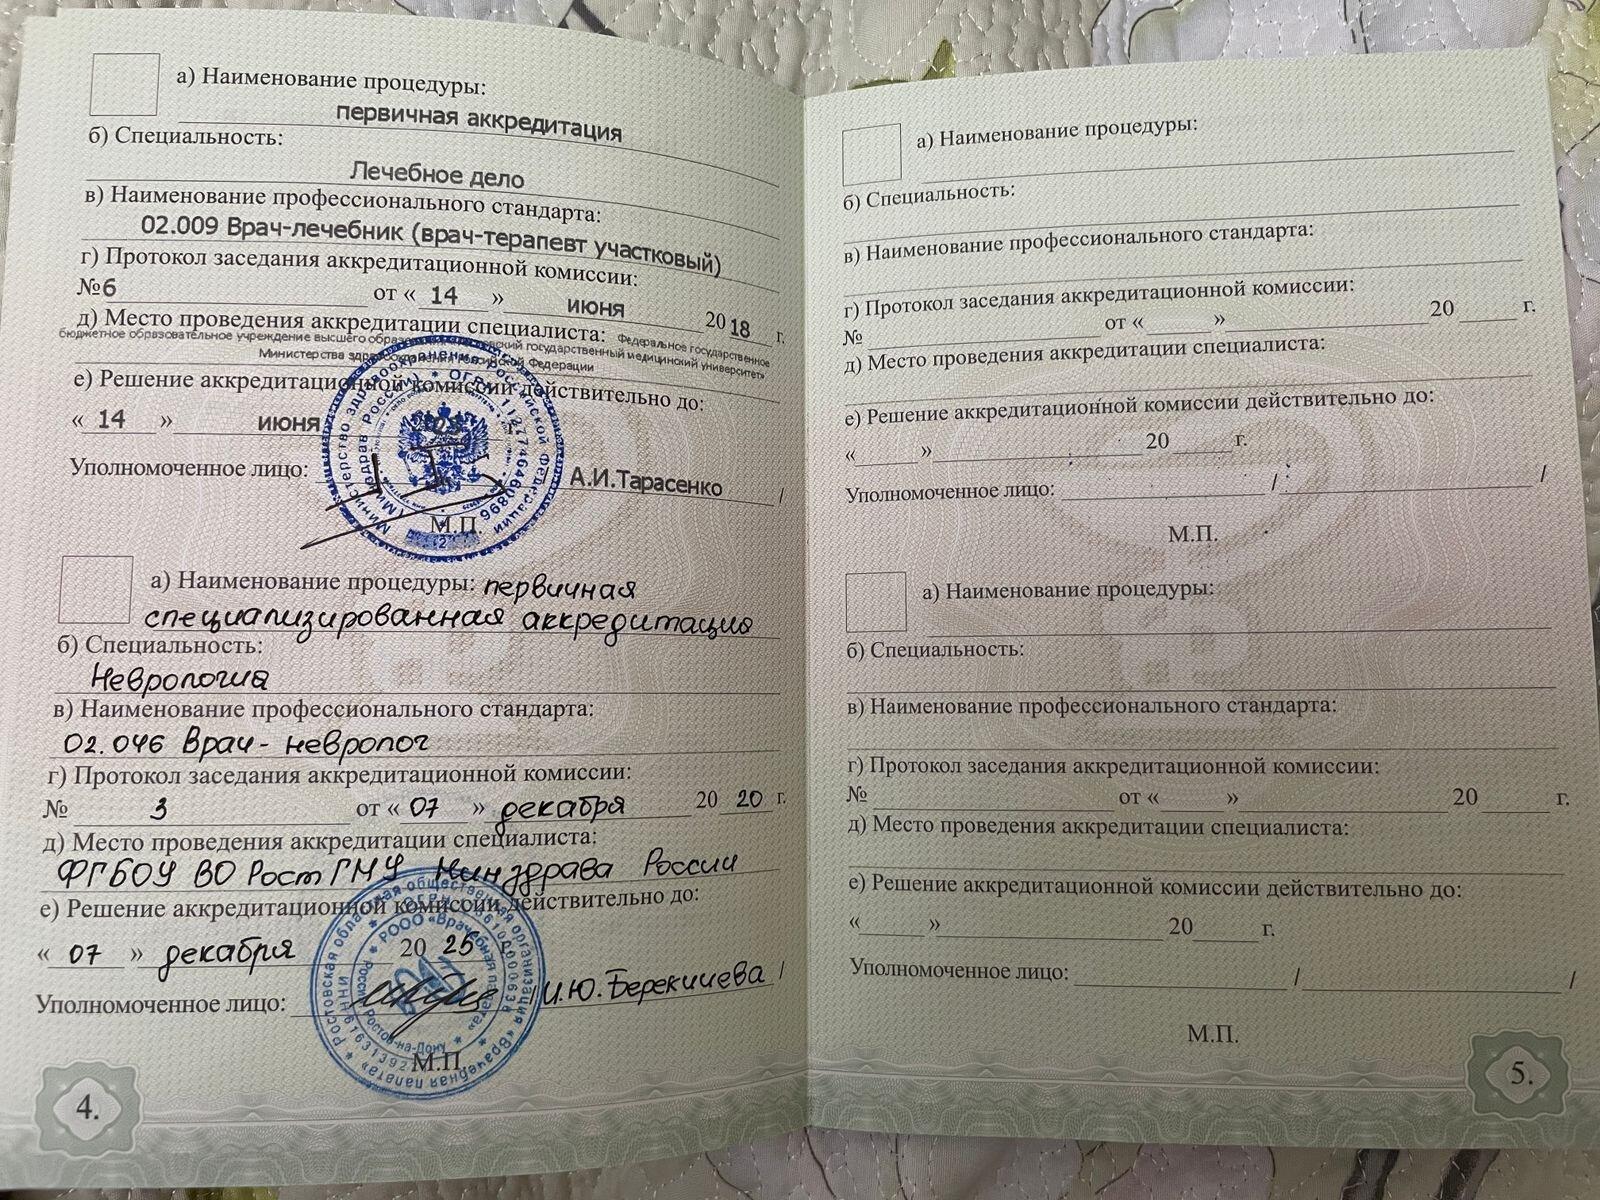 а) Наименование процедуры:
первичная аккредитация
б) Специальность:
Лечебное дело
в) Наименование профессионального стандарта:
02.009 Врач-лечебник (врач-терапевт участковый)
г) Протокол заседания аккредитационной комиссии:
№6 от « 14 » июня 2018 г.
д) Место проведения аккредитации специалиста: Федеральное государственное
бюджетное образовательное учреждение высшего государственный медицинский университет»
Министерства здравоохранения Российской Федерации
е) Решение аккредитационной комиссии действительно до:
« 14 » июня
Уполномоченное лицо: / А.И.Тарасенко /
М.П.
Министерство здравоохранения Российской Федерации
(Минздрав России) * ОГРН 1127746460896
а) Наименование процедуры: первичная
специализированная аккредитация
б) Специальность:
Неврология
в) Наименование профессионального стандарта:
02.046 Врач-невролог
г) Протокол заседания аккредитационной комиссии:
№ 3 от « 07 » декабря 20 20 г.
д) Место проведения аккредитации специалиста:
ФГБОУ ВО РостГМУ Минздрава России
е) Решение аккредитационной комиссии действительно до:
« 07 » декабря 20 25 г.
Уполномоченное лицо: / И.Ю.Берекчиева /
М.П.
* Ростовская областная общественная организация «Врачебная палата» *
РООО «Врачебная палата» * Ростов-на-Дону *
4.
а) Наименование процедуры:
б) Специальность:
в) Наименование профессионального стандарта:
г) Протокол заседания аккредитационной комиссии:
№ от « » 20 г.
д) Место проведения аккредитации специалиста:
е) Решение аккредитационной комиссии действительно до:
« » 20 г.
Уполномоченное лицо: / /
М.П.
а) Наименование процедуры:
б) Специальность:
в) Наименование профессионального стандарта:
г) Протокол заседания аккредитационной комиссии:
№ от « » 20 г.
д) Место проведения аккредитации специалиста:
е) Решение аккредитационной комиссии действительно до:
« » 20 г.
Уполномоченное лицо: / /
М.П.
5.